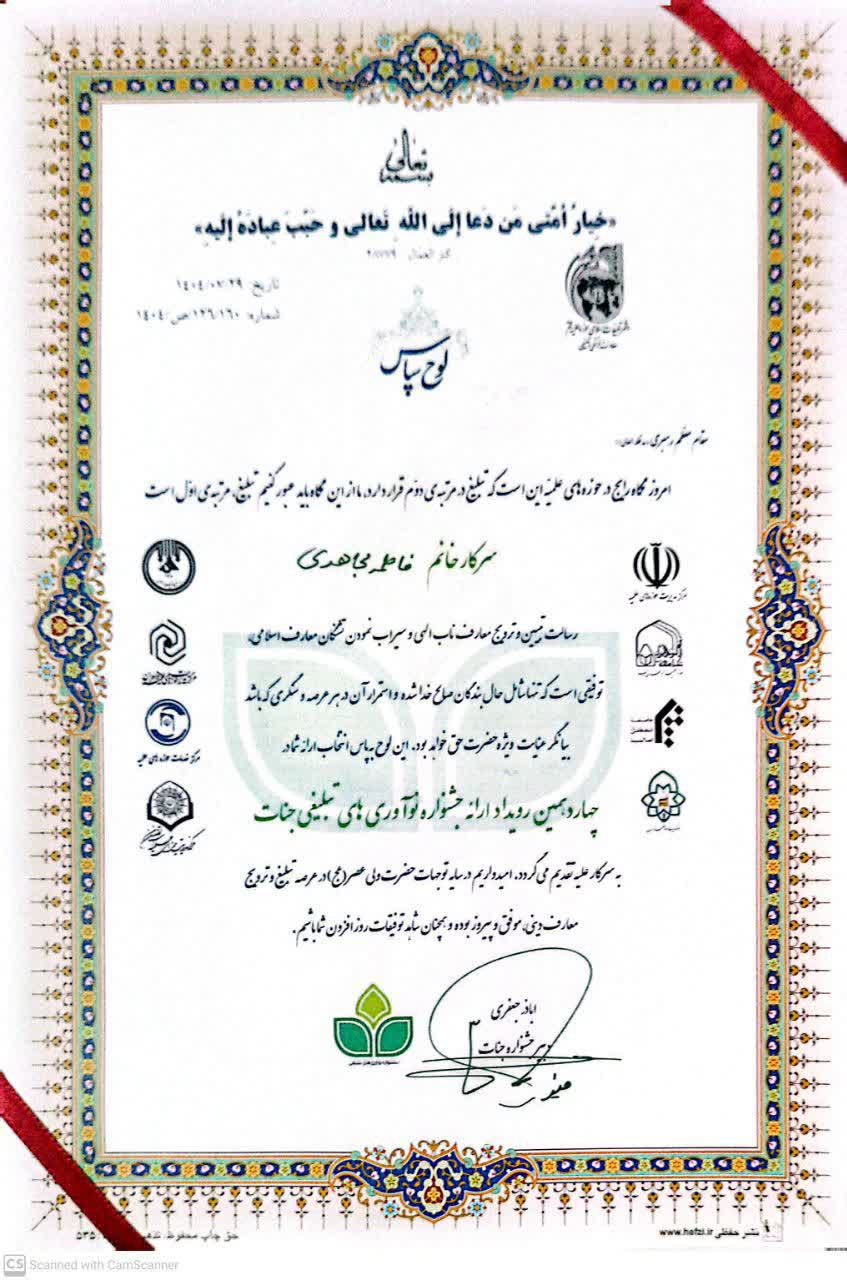 بسمه تعالی
«خِیارُ أُمَّتی مَن دَعا إلَی اللّه تَعالی و حَبَّبَ عِبادَهُ إلیه»
کنز العمال
تاریخ: ۱۴۰۴/۰۷/۲۹
شماره: ۱۲۶/۱۶۰/ص/۱۴۰۴
لوح سپاس
مقام معظم رهبری
امروز نگاه رایج در حوزه‌های علمیّه این است که تبلیغ در مرتبه‌ی دوّم قرار دارد. ما از این نگاه باید عبور کنیم تبلیغ، مرتبه‌ی اوّل است
سرکار خانم فاطمه مجاهدی
رسالت تبیین و ترویج معارف ناب الهی و سیراب نمودن تشنگان معارف اسلامی،
توفیقی است که تنها شامل حال بندگان صالح خدا شده و استمرار آن در هر عرصه و سنگری که باشد
بیانگر عنایت ویژه حضرت حق خواهد بود. این لوح به پاس انتخاب ارائه شما در
چهاردهمین رویداد ارائه جشنواره نوآوری های تبلیغی جنات
به سرکار علیه تقدیم می‌گردد. امیدواریم در سایه توجهات حضرت ولی عصر(عج) در عرصه تبلیغ و ترویج
معارف دینی، موفق و پیروز بوده و همچنان شاهد توفیقات روز افزون شما باشیم.
مرکز مدیریت حوزه‌های علمیه
مرکز خدمات حوزه های علمیه
اباذر جعفری
دبیر جشنواره جنات
نشر حفظی www.hefzi.ir
حق چاپ محفوظ.
۵۳۵
CS Scanned with CamScanner